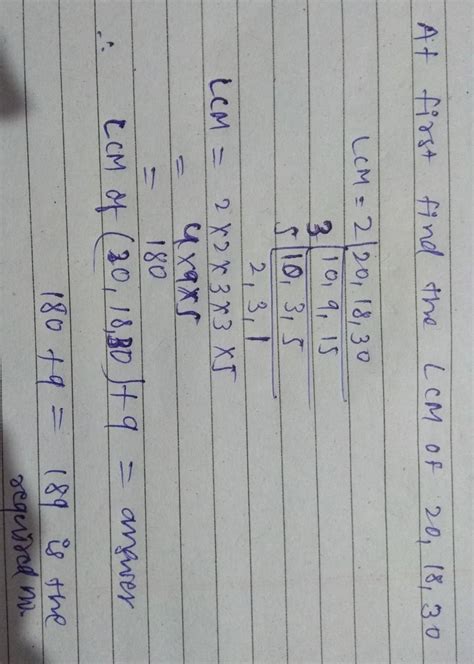 At first find the LCM of 20, 18, 30
LCM = 2 | 20, 18, 30
3 | 10, 9, 15
5 | 10, 3, 5
2, 3, 1
LCM = 2 x 2 x 3 x 3 x 5
= 4 x 9 x 5
= 180
∴ LCM of (20, 18, 30) + 9 = answer
180 + 9 = 189 is the
required no.